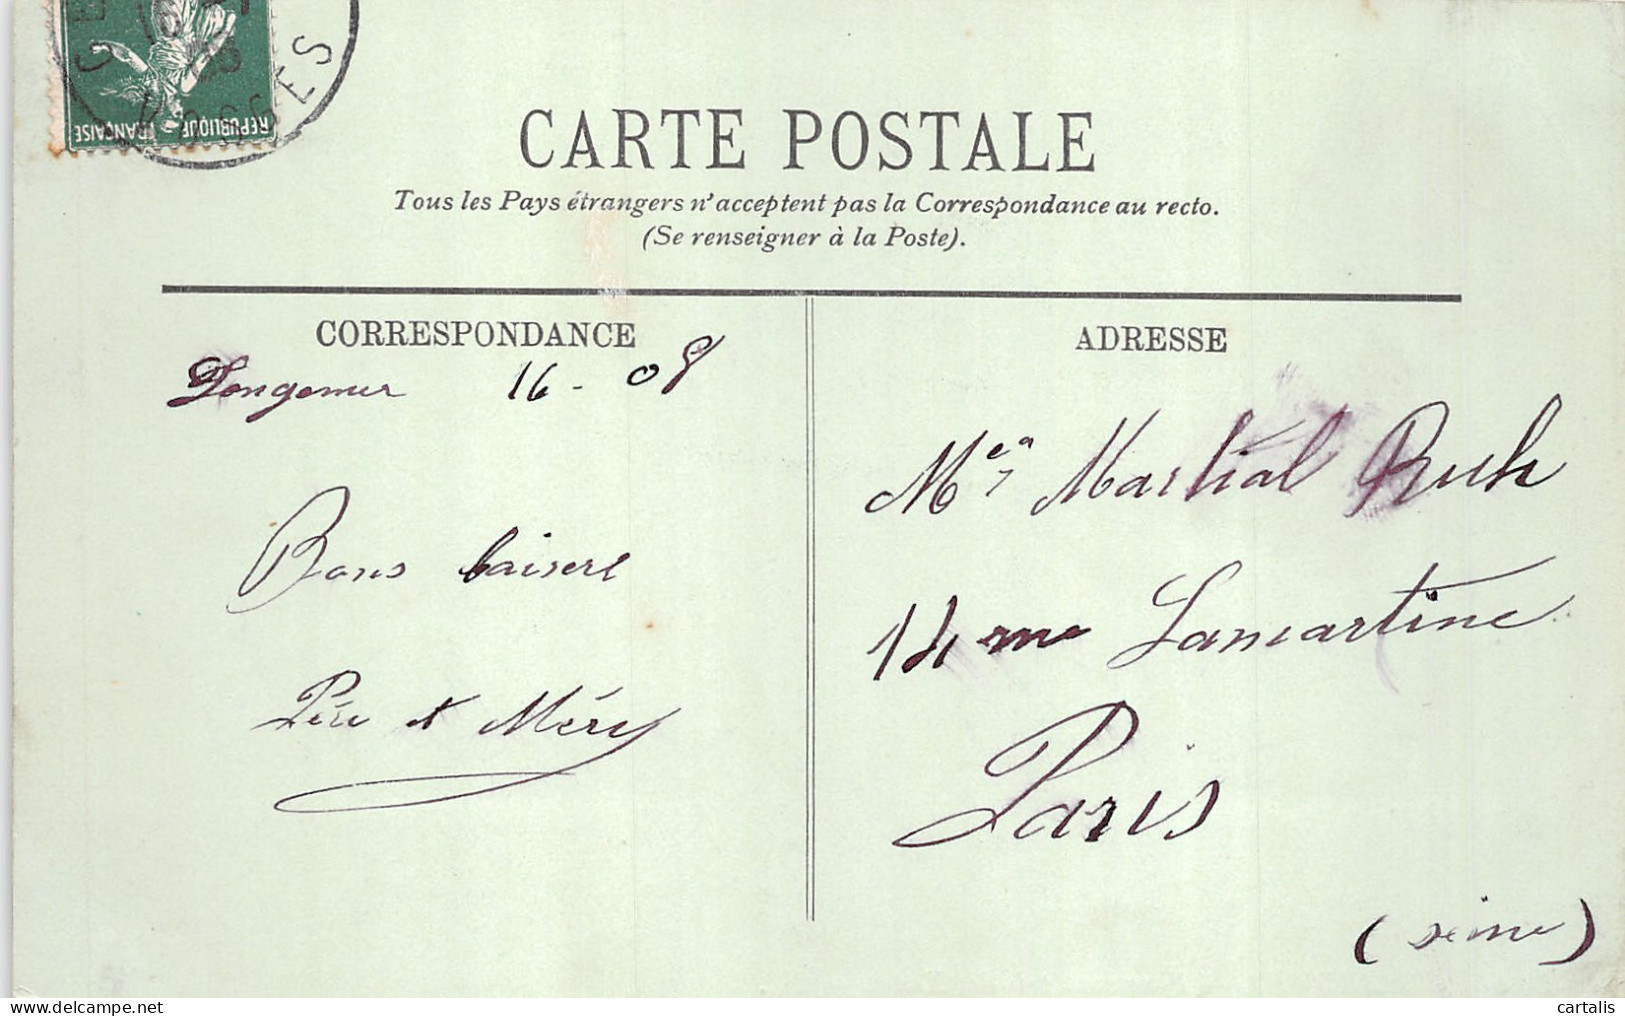 RÉPUBLIQUE FRANÇAISE
VOSGES
CARTE POSTALE
Tous les Pays étrangers n'acceptent pas la Correspondance au recto.
(Se renseigner à la Poste).
CORRESPONDANCE
Longemer 16 - 08
Bons baisers
Père et Méry
ADRESSE
Martial Ruch
14 rue Lamartine
Paris
(Seine)
cartalis